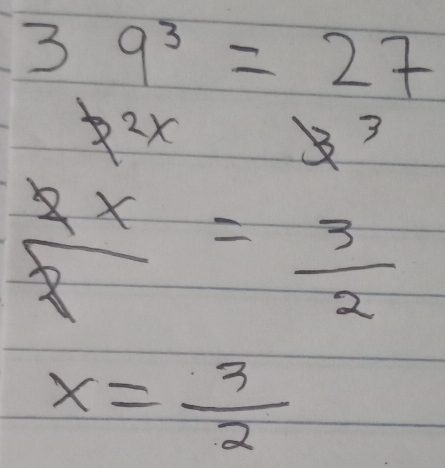 3 9³ = 27
3²ˣ 3³
2x/2 = 3/2
x = 3/2